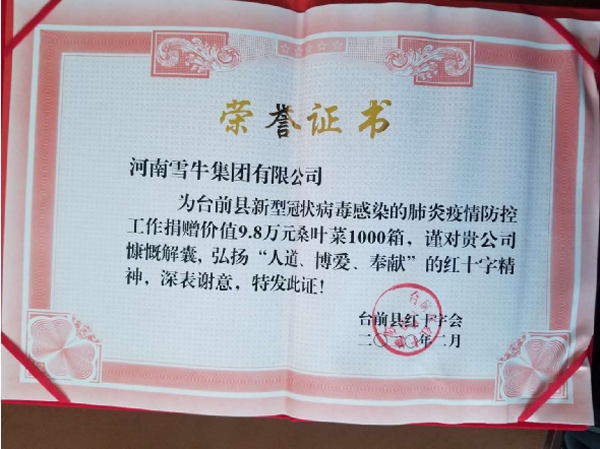 荣誉证书
河南雪牛集团有限公司
为台前县新型冠状病毒感染的肺炎疫情防控
工作捐赠价值9.8万元桑叶菜1000箱，谨对贵公司
慷慨解囊，弘扬“人道、博爱、奉献”的红十字精
神，深表谢意，特发此证！
台前县红十字会
二〇二〇年二月